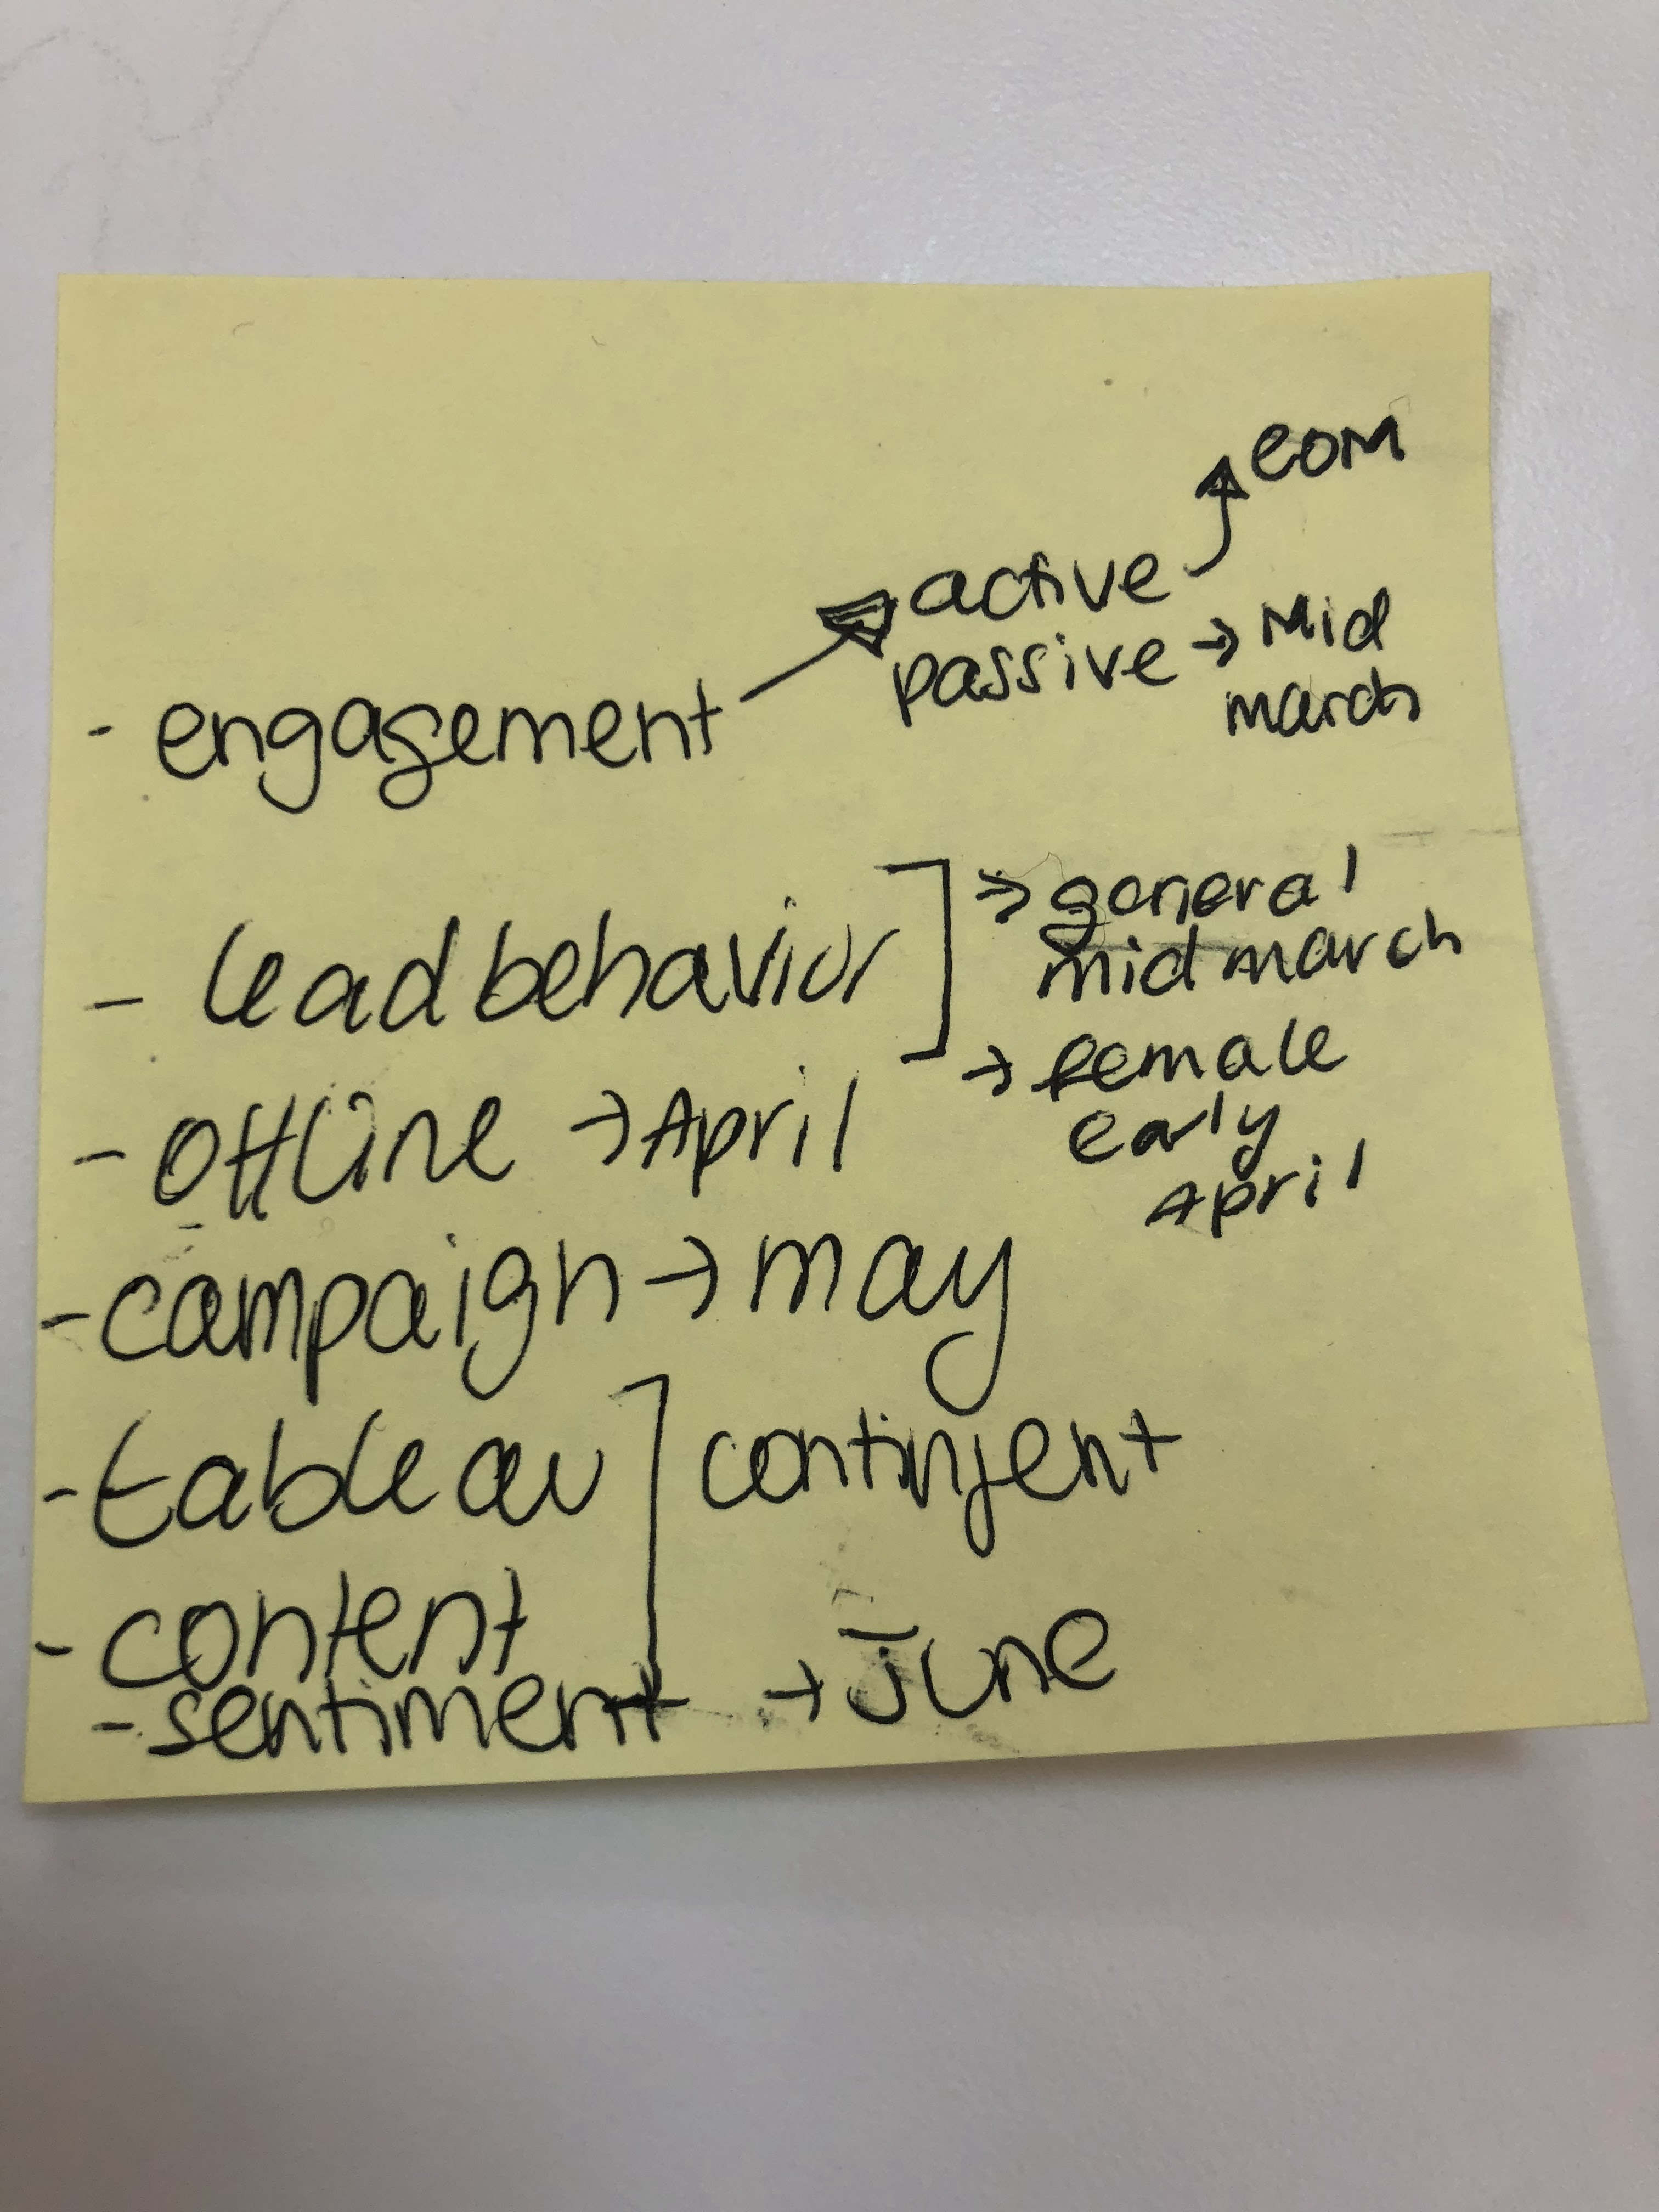 eom
- engagement → active
passive → Mid
march
- lead behavior ] → general
mid march
→ female
early
April
- offline → April
- campaign → may
- tableau ] continjent
- content
- sentiment → june